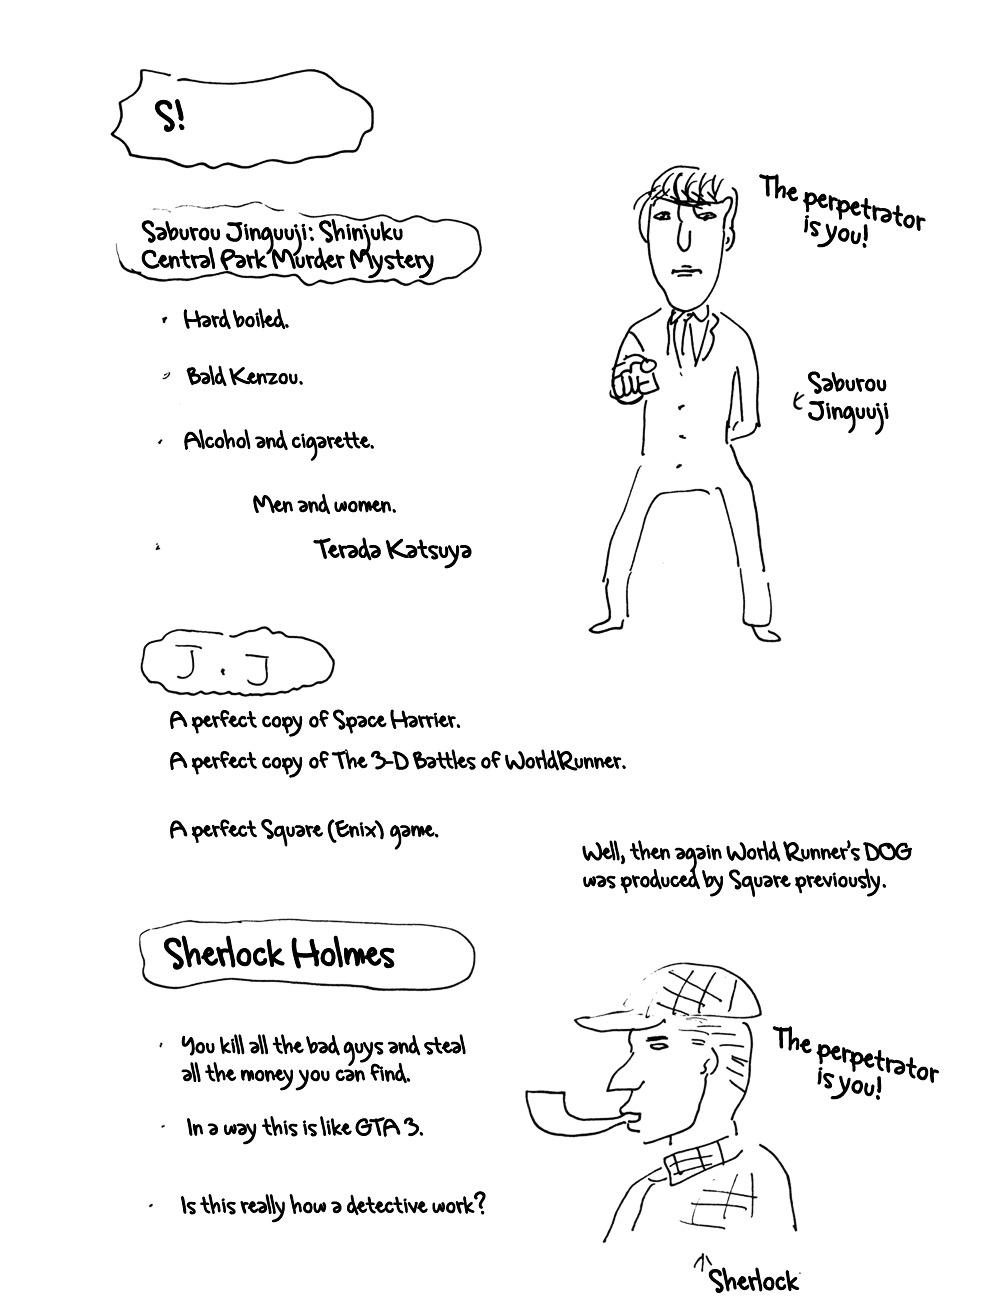 S!
Saburou Jinguuji: Shinjuku
Central Park Murder Mystery
The perpetrator
is you!
· Hard boiled.
· Bald Kenzou.
· Alcohol and cigarette.
Men and women.
· Terada Katsuya
Saburou
Jinguuji
J.J
A perfect copy of Space Harrier.
A perfect copy of The 3-D Battles of WorldRunner.
A perfect Square (Enix) game.
Well, then again World Runner's DOG
was produced by Square previously.
Sherlock Holmes
· You kill all the bad guys and steal
all the money you can find.
· In a way this is like GTA 3.
· Is this really how a detective work?
The perpetrator
is you!
Sherlock